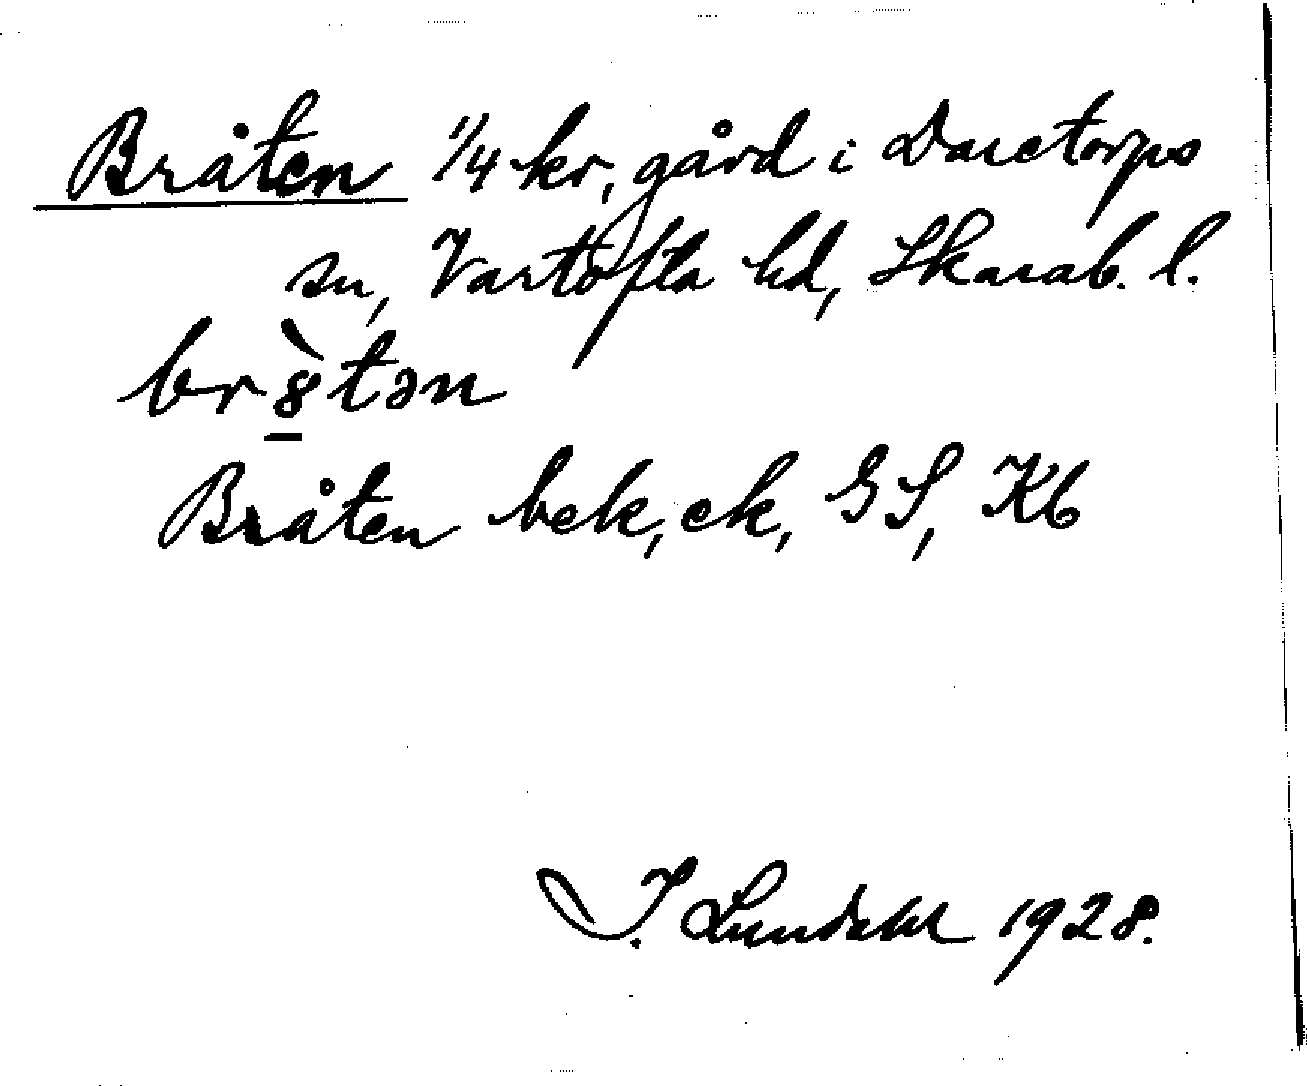 Bråten 1/4 kr, gård i Daretorps
sn, Vartofta hd, Skarab. l.
br8̠̀tən
Bråten bek, ek, GS, Kb
I. Lundahl 1928.